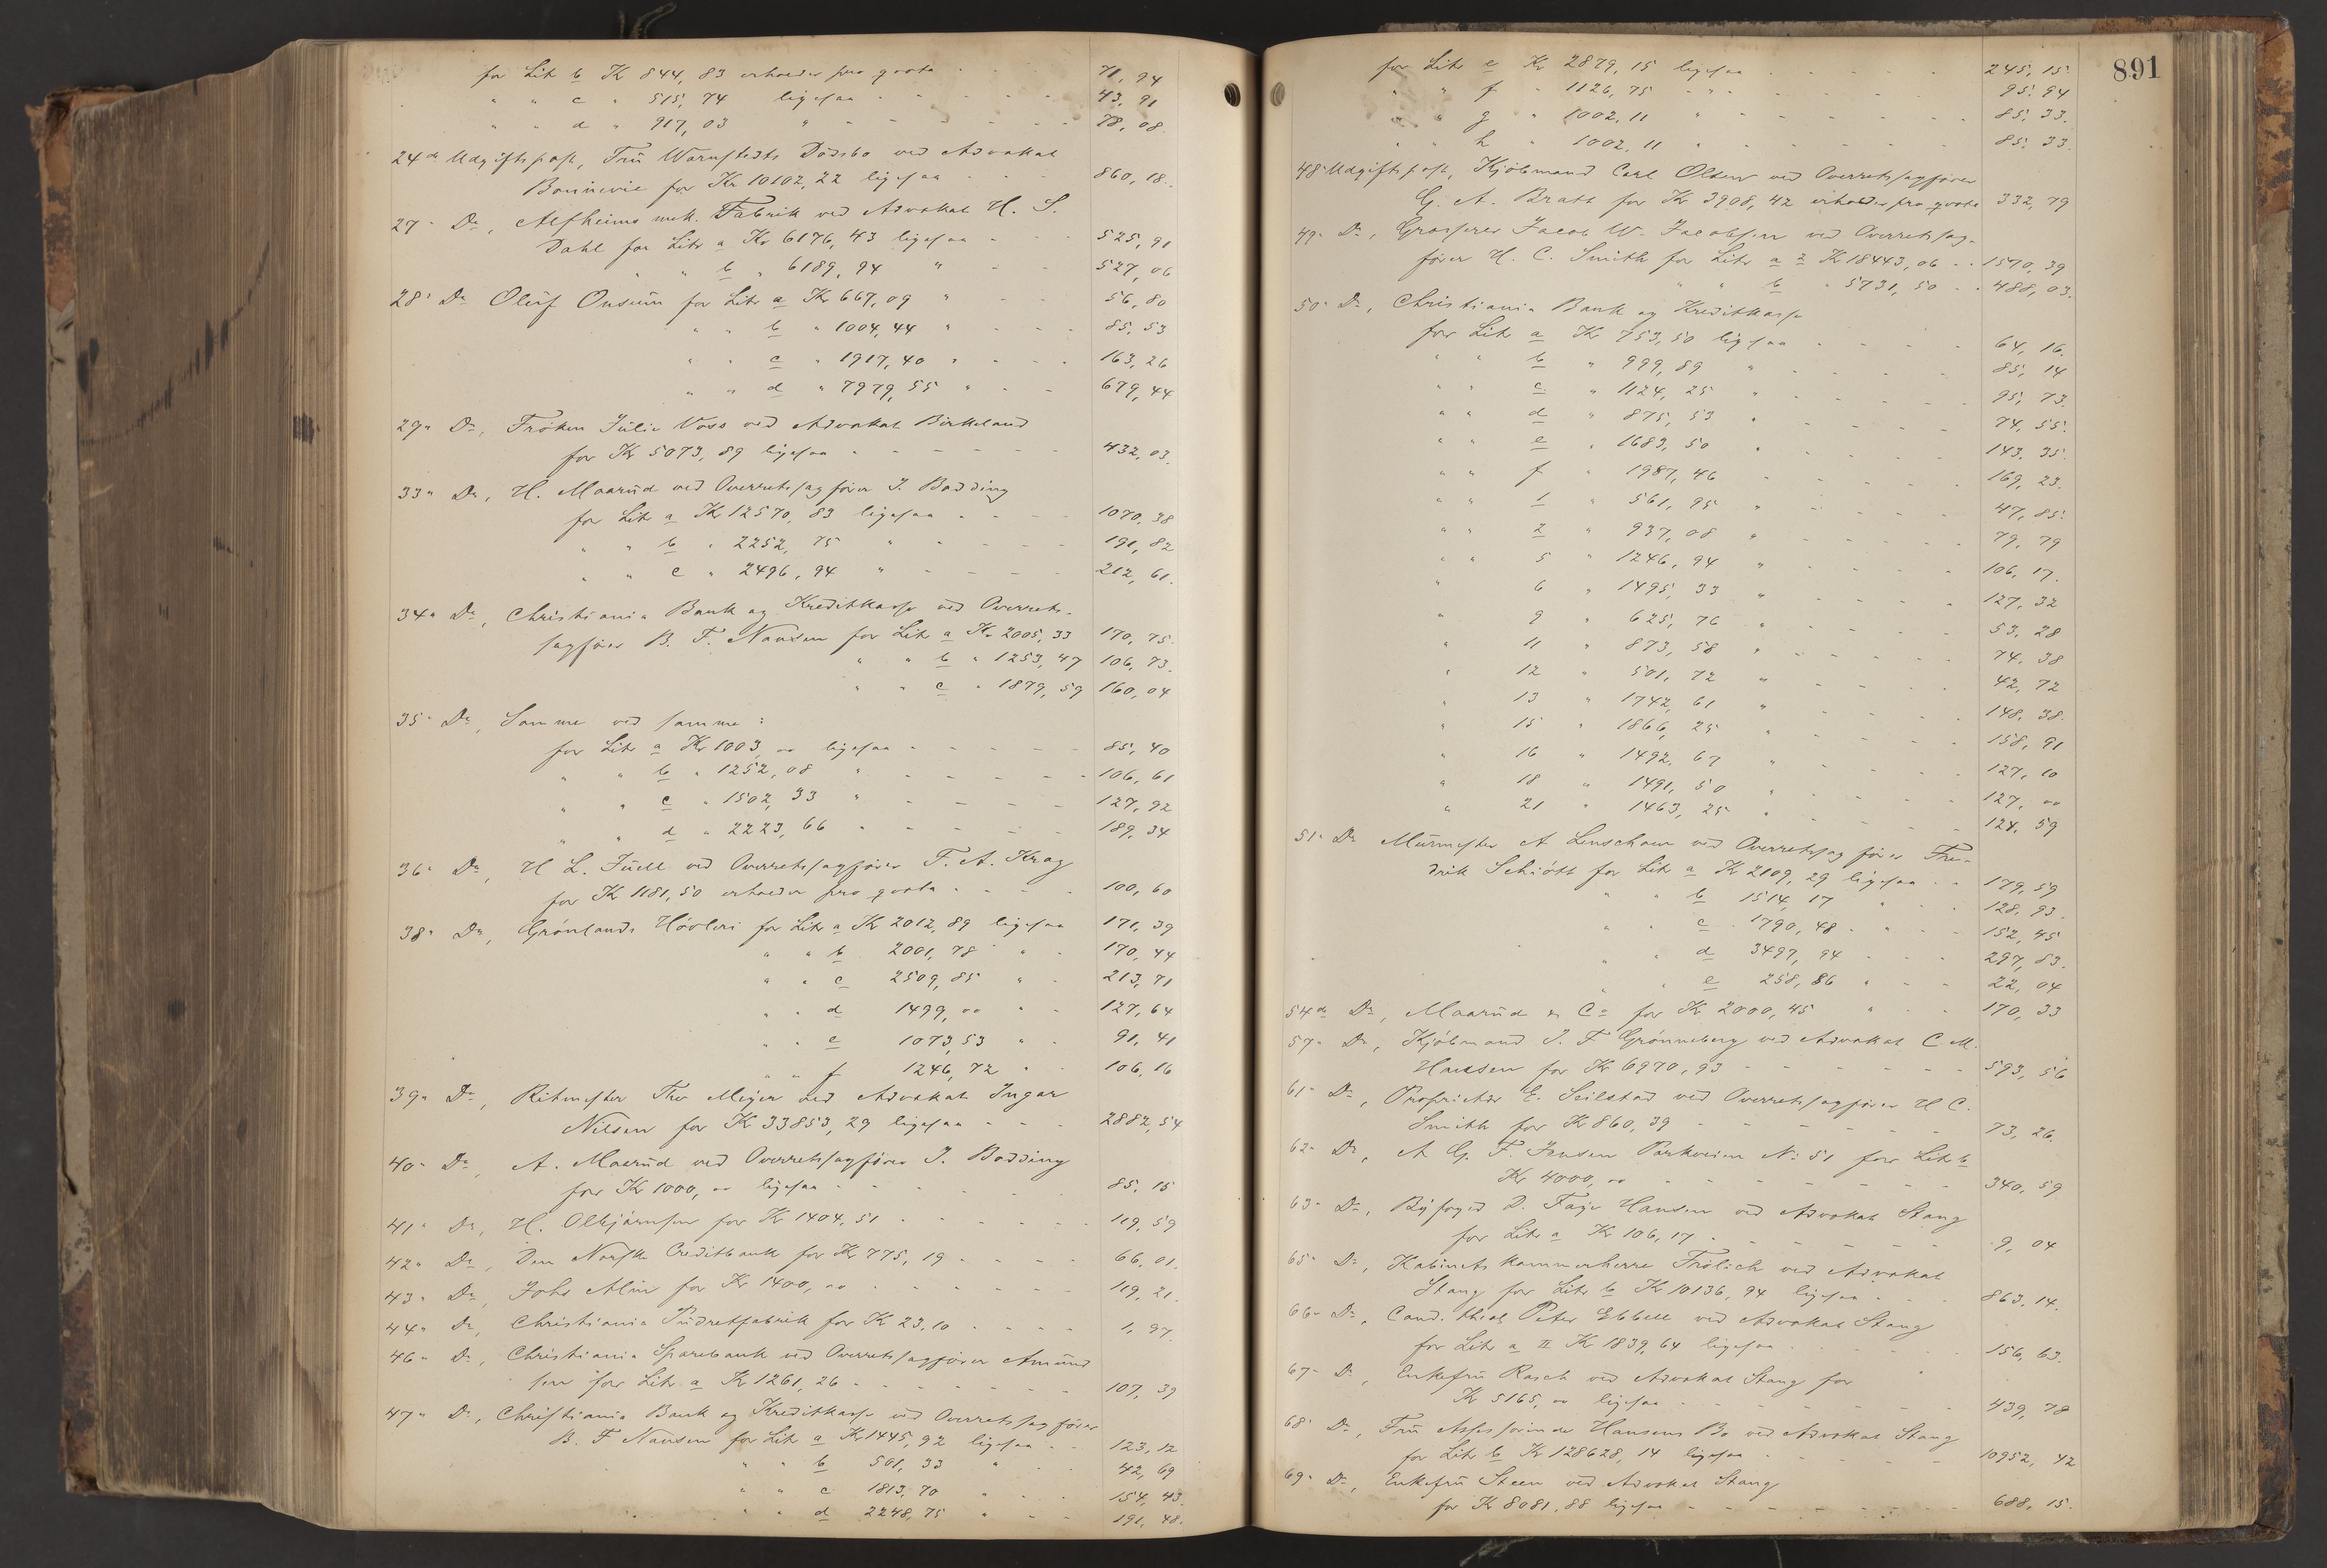 for Litr b Kr 844,83 erholder pro qvota - - 71,94
" " c " 515,74 ligesaa - - - - - 43,91
" " d " 917,03 " - - - - - - 78,08.
24de Udgiftspost, Frü Warnstedts Dödsbo ved Advokat
Bonnevie for Kr 10102,22 ligesaa - - - 860,18.
27" Do, Alfheims mek. Fabrik ved Advokat H. S.
Dahl for Litr a Kr 6176,43 ligesaa - - - 525,91
" " b " 6189,94 " - - - 527,06
28" Do Olüf Onsüm for Litr a Kr 667,09 " - - - 56,80
" " b " 1004,44 " - - - 85,53
" " c " 1917,40 " - - - 163,26
" " d " 7979,55 " - - - 679,44
29" Do, Fröken Jülie Voss ved Advokat Birkeland
for Kr 5073,89 ligesaa - - - - - - - 432,03.
33" Do, H. Maarüd ved Overretssagförer J. Bödding
for Litr a Kr 12570,83 ligesaa - - - - 1070,38
" " b " 2252,75 " - - - - - 191,82
" " c " 2496,94 " - - - - - 212,61.
34" Do, Christiania Bank og Kreditkasse ved Overrets-
sagförer B. F. Nansen for Litr a Kr 2005,33 170,75.
" " b " 1253,47 106,73.
" " c " 1879,59 160,04
35" Do, Samme ved samme:
for Litr a Kr 1003,00 ligesaa - - - - - 85,40
" " b " 1252,08 " - - - - - - 106,61
" " c " 1502,33 " - - - - - 127,92
" " d " 2223,66 " - - - - - 189,34
36" Do, H L. Jüell ved Overretssagförer F. A. Krag
for Kr 1181,50 erholder pro qvota - - - - 100,60
38" Do, Grönlands Hövleri for Litr a Kr 2012,89 ligesaa 171,39
" " b 2001,78 " - 170,44
" " c 2509,85 " - 213,71
" " d 1499,00 " - 127,64
" " e 1073,53 " - 91,41
" " f 1246,72 " - 106,16
39" Do, Ritmester Thv Meyer ved Advokat Ingar
Nilsen for Kr 33853,29 ligesaa - - - 2882,54
40" Do, A. Maarüd ved Overretssagförer J. Bödding
for Kr 1000,00 ligesaa - - - - - - - 85,15
41" Do, H. Olbjörnsen for Kr 1404,51 - - - - - - 119,59
42" Do, Den Norske Creditbank for Kr 775,19 - - - - 66,01.
43" Do, Johs Alm for Kr 1400,00 - - - - - - - 119,21.
44" Do, Christiania Püdretfabrik for Kr 23,10 - - - - 1,97.
46" Do, Christiania Sparebank ved Overretssagförer Amünd
sen for Litr a Kr 1261,26 - - - - - - - 107,39
47" Do, Christiania Bank og Kreditkasse ved Overretssagförer
B. F Nansen for Litr a Kr 1445,92 ligesaa - - 123,12
" " b 501,33 " - - 42,69
" " c 1813,70 " - - 154,43.
" " d 2248,75 " - - 191,48.
891
for Litr e Kr 2879,15 ligesaa - - - - - 245,15.
" " f " 1126,75 " - - - - - 95,94
" " g " 1002,11 " - - - - - - 85,33.
" " h " 1002,11 " - - - - - - 85,33.
48" Udgiftspost, Kjöbmand Carl Olsen ved Overretssagförer
G. A. Bratt for Kr 3908,42 erholder pro qvota 332,79
49" Do, Grosserer Jacob W. Jacobsen ved Overretssag-
förer H. C. Smith for Litr a 2 Kr 18443,06 - - 1570,39
" " b " 5731,50 - - 488,03.
50" Do, Christiania Bank og Kreditkasse
for Litr a Kr 753,50 ligesaa - - - - 64,16.
" " b " 999,89 " - - - - - 85,14
" " c " 1124,25 " - - - - - 95,73.
" " d " 875,53 " - - - - - 74,55.
" " e " 1683,50 " - - - - - 143,35.
" " f " 1987,46 " - - - - - 169,23.
" " 1 " 561,95 " - - - - - 47,85.
" " 2 " 937,08 " - - - - - 79,79
" " 5 " 1246,94 " - - - - - 106,17.
" 6 " 1495,33 " - - - - - 127,32
" 9 " 625,76 " - - - - - 53,28
" 11 " 873,58 " - - - - - 74,38
" 12 " 501,72 " - - - - - 42,72
" 13 " 1742,61 " - - - - - 148,38.
" 15 " 1866,25 " - - - - - 158,91
" 16 " 1492,67 " - - - - - 127,10
" 18 " 1491,50 " - - - - - 127,00
" 21 " 1463,25 " - - - - - 124,59
51" Do Mürmester A Lenschow ved Overretssagförer Fre-
drik Schiött for Litr a Kr 2109,29 ligesaa - - 179,59
" " b 1514,17 " - - 128,93.
" " c 1790,48 " - - 152,45
" " d 3497,94 - - - 297,83.
" " e 258,86 " - - 22,04
54de Do, Maarüd & Co for Kr 2000,45 " - - 170,33
57" Do, Kjöbmand J. F Grönneberg ved Advokat C. M.
Hansen for Kr 6970,93 - - - - - - - 593,56
61" Do, Proprietær E. Seilstad ved Overretssagförer H C.
Smith for Kr 860,39 - - - - - - - 73,26.
62" Do, A G. F. Jensen Parkveien No 51 for Litr b
Kr 4000,00 - - - - - - - - 340,59
63" Do, Byfoged D. Faye Hansen ved Advokat Stang
for Litr a Kr 106,17 - - - - - - - 9,04
65" Do, Kabinetskammerherre Frölich ved Advokat
Stang for Litr b Kr 10136,94 ligesaa - - - 863,14.
66" Do, Cand. theol Peter Ebbell ved Advokat Stang
for Litr a II Kr 1839,64 ligesaa - - - - - 156,63.
67" Do, Enkefrü Rasch ved Advokat Stang for
Kr 5165,00 ligesaa - - - - - - - 439,78
68" Do, Frü Assessorinde Hansens Bo ved Advokat Stang
for Litr b Kr 128628,14 ligesaa - - - - - 10952,42
69" Do, Enkefrü Steen ved Advokat Stang
for Kr 8081,88 ligesaa - - - - - - - 688,15.